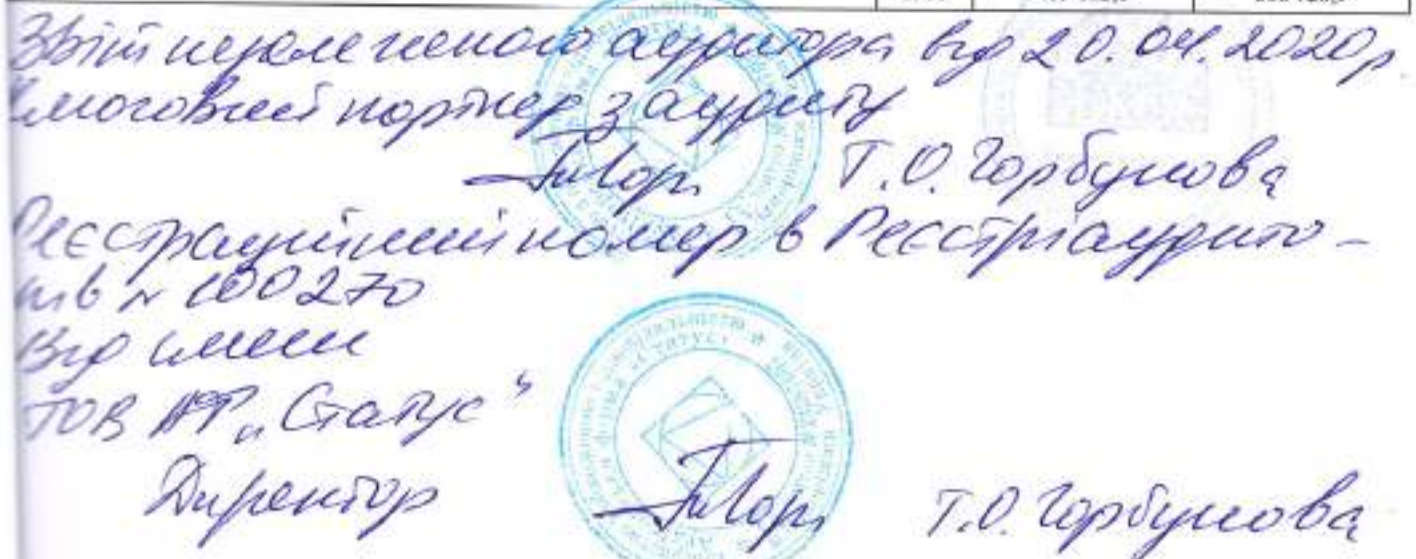 Звіт незалежного аудитора від 20.04.2020р
Ключовий партнер з аудиту
Т.О. Горбунова
Реєстраційний номер в Реєстрі аудито-
рів № 100270
Від імені
ТОВ АФ „Статус"
Директор Т.О. Горбунова